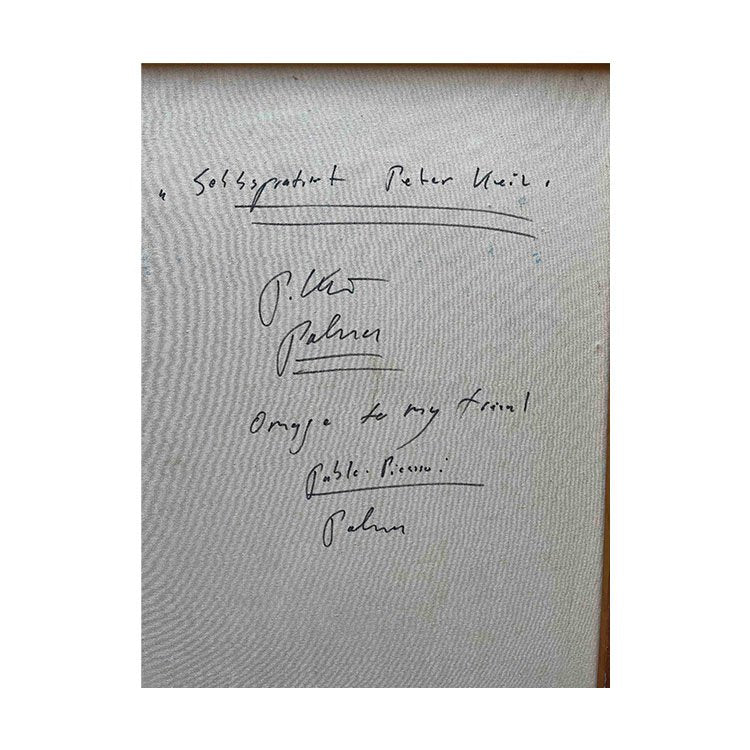 „ Selbsportret Peter Keil.
P. Keil
Palmer
Omage to my friend
Pablo. Picasso.
Palmer